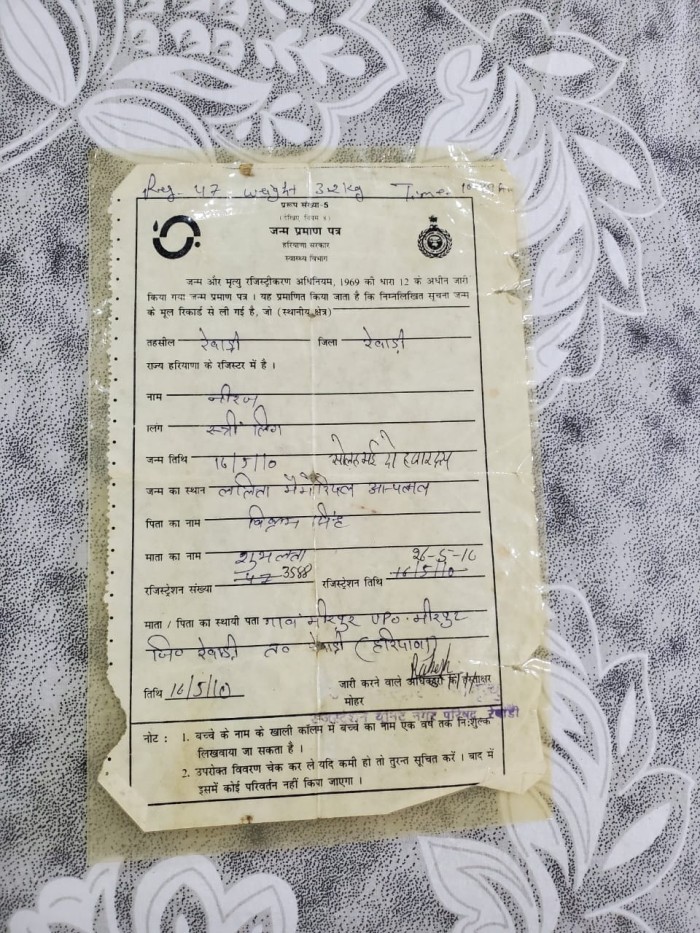 Reg. 47 weight 3.2kg Time
प्ररूप संख्या-5
( देखिए नियम 8 )
जन्म प्रमाण पत्र
हरियाणा सरकार
स्वास्थ्य विभाग
जन्म और मृत्यु रजिस्ट्रीकरण अधिनियम, 1969 की धारा 12 के अधीन जारी
किया गया जन्म प्रमाण पत्र । यह प्रमाणित किया जाता है कि निम्नलिखित सूचना जन्म
के मूल रिकार्ड से ली गई है, जो (स्थानीय क्षेत्र)
तहसील रेवाड़ी जिला रेवाड़ी
राज्य हरियाणा के रजिस्टर में है ।
नाम नीरज
लिंग स्त्री लिंग
जन्म तिथि 16/5/10 सोलह मई दो हजार दस
जन्म का स्थान ललिता मैमोरियल अस्पताल
पिता का नाम विक्रम सिंह
माता का नाम शुभलता 26-5-10
रजिस्ट्रेशन संख्या 47 3588 रजिस्ट्रेशन तिथि 16/5/10
माता / पिता का स्थायी पता गांव मीरपुर VPO. मीरपुर
जि० रेवाड़ी त० रेवाड़ी (हरियाणा)
तिथि 16/5/10 जारी करने वाले अधिकारी के हस्ताक्षर
मोहर
रजिस्ट्रेशन यूनिट नगर परिषद रेवाड़ी
नोट : 1. बच्चे के नाम के खाली कॉलम में बच्चे का नाम एक वर्ष तक नि:शुल्क
लिखवाया जा सकता है ।
2. उपरोक्त विवरण चेक कर ले यदि कमी हो तो तुरन्त सूचित करें । बाद में
इसमें कोई परिवर्तन नहीं किया जाएगा ।